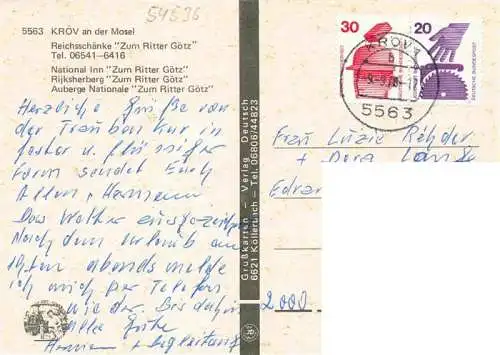 54536
5563 KRÖV an der Mosel
Reichsschänke "Zum Ritter Götz"
Tel. 06541–6416
National Inn "Zum Ritter Götz"
Rijksherberg "Zum Ritter Götz"
Auberge Nationale "Zum Ritter Götz"
Herzliche Grüße von
der Trauben kur in
fester u. flüssiger
Form sendet Euch
Allen, Hermann
Das Wetter ausgezeich
Nach dem Urlaub am
abends melde
ich mich per Telefon
wieder. Bis dahin
alle Gute
+ Begleitung
Grußkarten – Verlag Deutsch
6621 Köllerbach – Tel. 06806/44823
30
20
DEUTSCHE BUNDESPOST
KRÖV
b
5563
Frau Luzie Rehder
+ Dora
2000